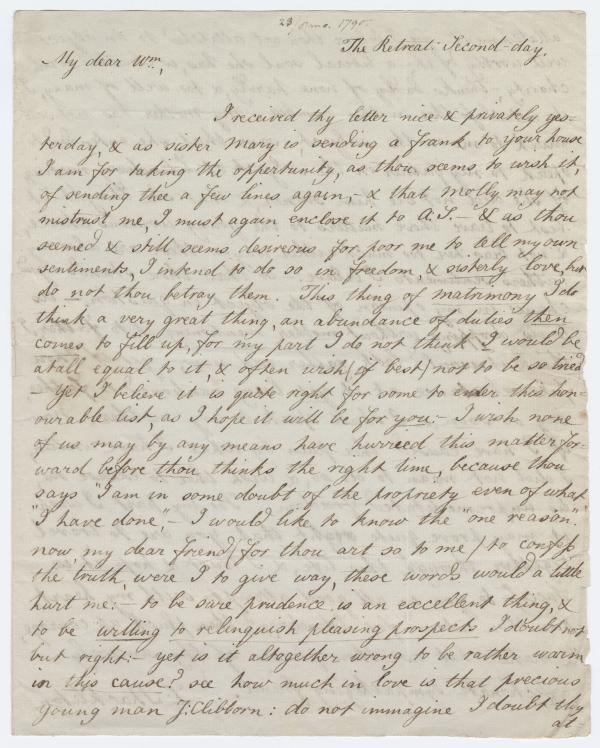 23 1790.
The Retreat: Second-day.
My dear Wm,
I received thy letter nice & privately yes=
terday, & as sister Mary is sending a frank to your house
I am for taking the opportunity, as thou seems to wish it,
of sending thee a few lines again, - & that Molly may not
mistrust me, I must again enclose it to A.T. - & as thou
seemed & still seems desireous for poor me to tell my own
sentiments, I intend to do so in freedom, & sisterly love, but
do not thou betray them. This thing of matrimony I do
think a very great thing, an abundance of duties then
comes to fill up, for my part I do not think I would be
atall equal to it, & often wish (if best) not to be so tried
- yet I believe it is quite right for some to enter this hon=
ourable list, as I hope it will be for you: - I wish none
of us may by any means have hurried this matter for=
ward before thou thinks the right time, because thou
says "I am in some doubt of the propriety even of what
"I have done", - I would like to know the "one reason".
now, my dear friend (for thou art so to me) to confess
the truth, were I to give way, these words would a little
hurt me: - to be sure prudence is an excellent thing, &
to be willing to relinquish pleasing prospects I doubt not
but right: - yet is it altogether wrong to be rather warm
in this cause? see how much in love is that precious
young man J: Clibborn: do not immagine I doubt thy
at-